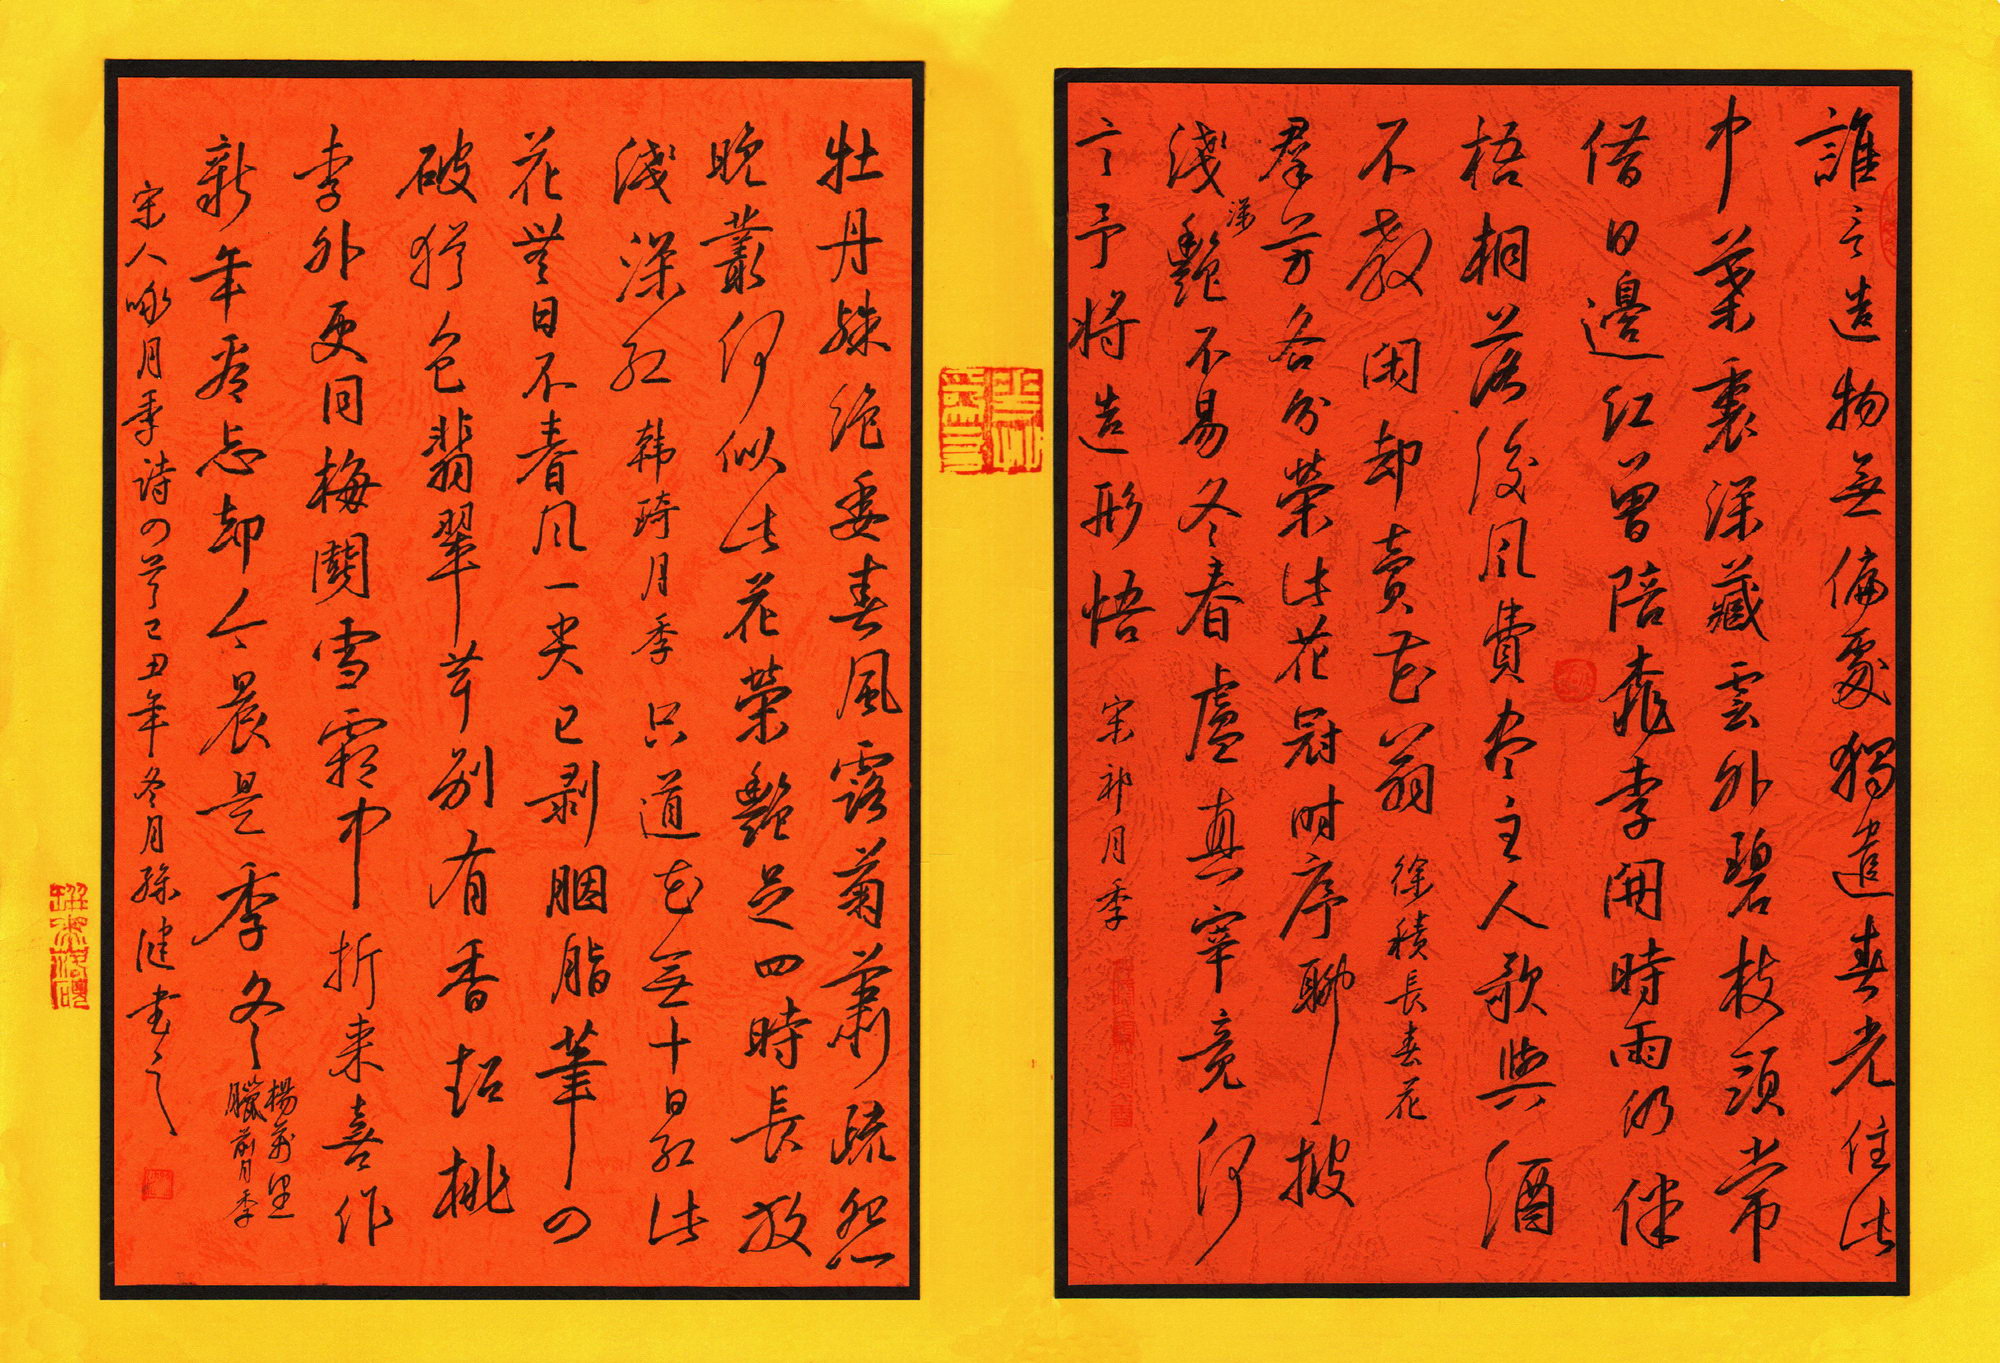 誰言造物無偏處獨遣春光住此
中葉裏深藏雲外碧枝頭常
借日邊紅曾陪桃李開時雨仍伴
梧桐落後風費盡主人歌與酒
不教閑却賣花翁 徐積長春花
羣芳各分榮此花冠時序聊披
淺深艷不易冬春慮真宰竟何
言予將造形悟 宋祁月季
牡丹殊絕委春風露菊蕭疏怨
晚叢何似此花榮艷足四時長放
淺深紅 韩琦月季 只道花無十日紅此
花無日不春風一尖已剥胭脂筆四
破猶包翡翠茸別有香超桃
李外更同梅鬬雪霜中折来喜作
新年看忘却今晨是季冬 楊萬里
臘前月季
宋人咏月季詩四首己丑年冬月孫健書之